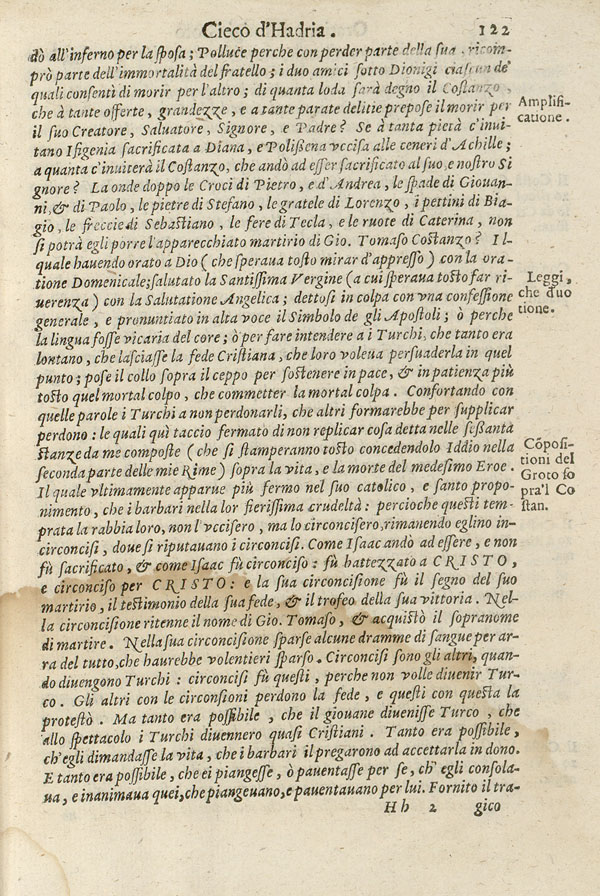 Cieco d'Hadria. 122
dò all'inferno per la sposa; Polluce perche con perder parte della sua, ricom-
prò parte dell'immortalità del fratello; i duo amici sotto Dionigi ciascun de'
quali consentì di morir per l'altro; di quanta loda sarà degno il Costanzo,
che à tante offerte, grandezze, e a tante parate delitie prepose il morir per
il suo Creatore, Saluatore, Signore, e Padre? Se à tanta pietà c'inui-
tano Ifigenia sacrificata a Diana, e Polißena vccisa alle ceneri d'Achille;
a quanta c'inuiterà il Costanzo, che andò ad esser sacrificato al suo, e nostro Si
gnore? La onde doppo le Croci di Pietro, e d'Andrea, le spade di Giouan-
ni, & di Paolo, le pietre di Stefano, le gratele di Lorenzo, i pettini di Bia-
gio, le freccie di Sebastiano, le fere di Tecla, e le ruote di Caterina, non
si potrà egli porre l'apparecchiato martirio di Gio. Tomaso Costanzo? Il-
quale hauendo orato a Dio (che speraua tosto mirar d'appresso) con la ora-
tione Domenicale; salutato la Santissima Vergine (a cui speraua tosto far ri-
uerenza) con la Salutatione Angelica; dettosi in colpa con vna confessione
generale, e pronuntiato in alta voce il Simbolo de gli Apostoli; ò perche
la lingua fosse vicaria del core; ò per fare intendere a i Turchi, che tanto era
lontano, che lasciasse la fede Cristiana, che loro voleua persuaderla in quel
punto; pose il collo sopra il ceppo per sostenere in pace, & in patienza più
tosto quel mortal colpo, che commetter la mortal colpa. Confortando con
quelle parole i Turchi a non perdonarli, che altri formarebbe per supplicar
perdono: le quali quì taccio fermato di non replicar cosa detta nelle seßanta
stanze da me composte (che si stamperanno tosto concedendolo Iddio nella
seconda parte delle mie Rime) sopra la vita, e la morte del medesimo Eroe.
Il quale vltimamente apparue più fermo nel suo catolico, e santo propo-
nimento, che i barbari nella lor fierissima crudeltà: percioche questi tem-
prata la rabbia loro, non l'vccisero, ma lo circoncisero, rimanendo eglino in-
circoncisi, doue si riputauano i circoncisi. Come Isaac andò ad essere, e non
fù sacrificato, & come Isaac fù circonciso: fù battezzato a CRISTO,
e circonciso per CRISTO: e la sua circoncisione fù il segno del suo
martirio, il testimonio della sua fede, & il trofeo della sua vittoria. Nel-
la circoncisione ritenne il nome di Gio. Tomaso, & acquistò il sopranome
di martire. Nella sua circoncisione sparse alcune dramme di sangue per ar-
ra del tutto, che haurebbe volentieri sparso. Circoncisi sono gli altri, quan-
do diuengono Turchi: circonciso fù questi, perche non volle diuenir Tur-
co. Gli altri con le circonsioni perdono la fede, e questi con questa la
protestò. Ma tanto era possibile, che il giouane diuenisse Turco, che
allo spettacolo i Turchi diuennero quasi Cristiani. Tanto era possibile,
ch'egli dimandasse la vita, che i barbari il pregarono ad accettarla in dono.
E tanto era possibile, che ei piangesse, ò pauentasse per se, ch' egli consola-
ua, e inanimaua quei, che piangeuano, e pauentauano per lui. Fornito il tra-
Hh 2 gico
Amplifi-
catione.
Leggi,
che duo
tione.
Cõposi-
tioni del
Groto so
pra'l Co
stan.